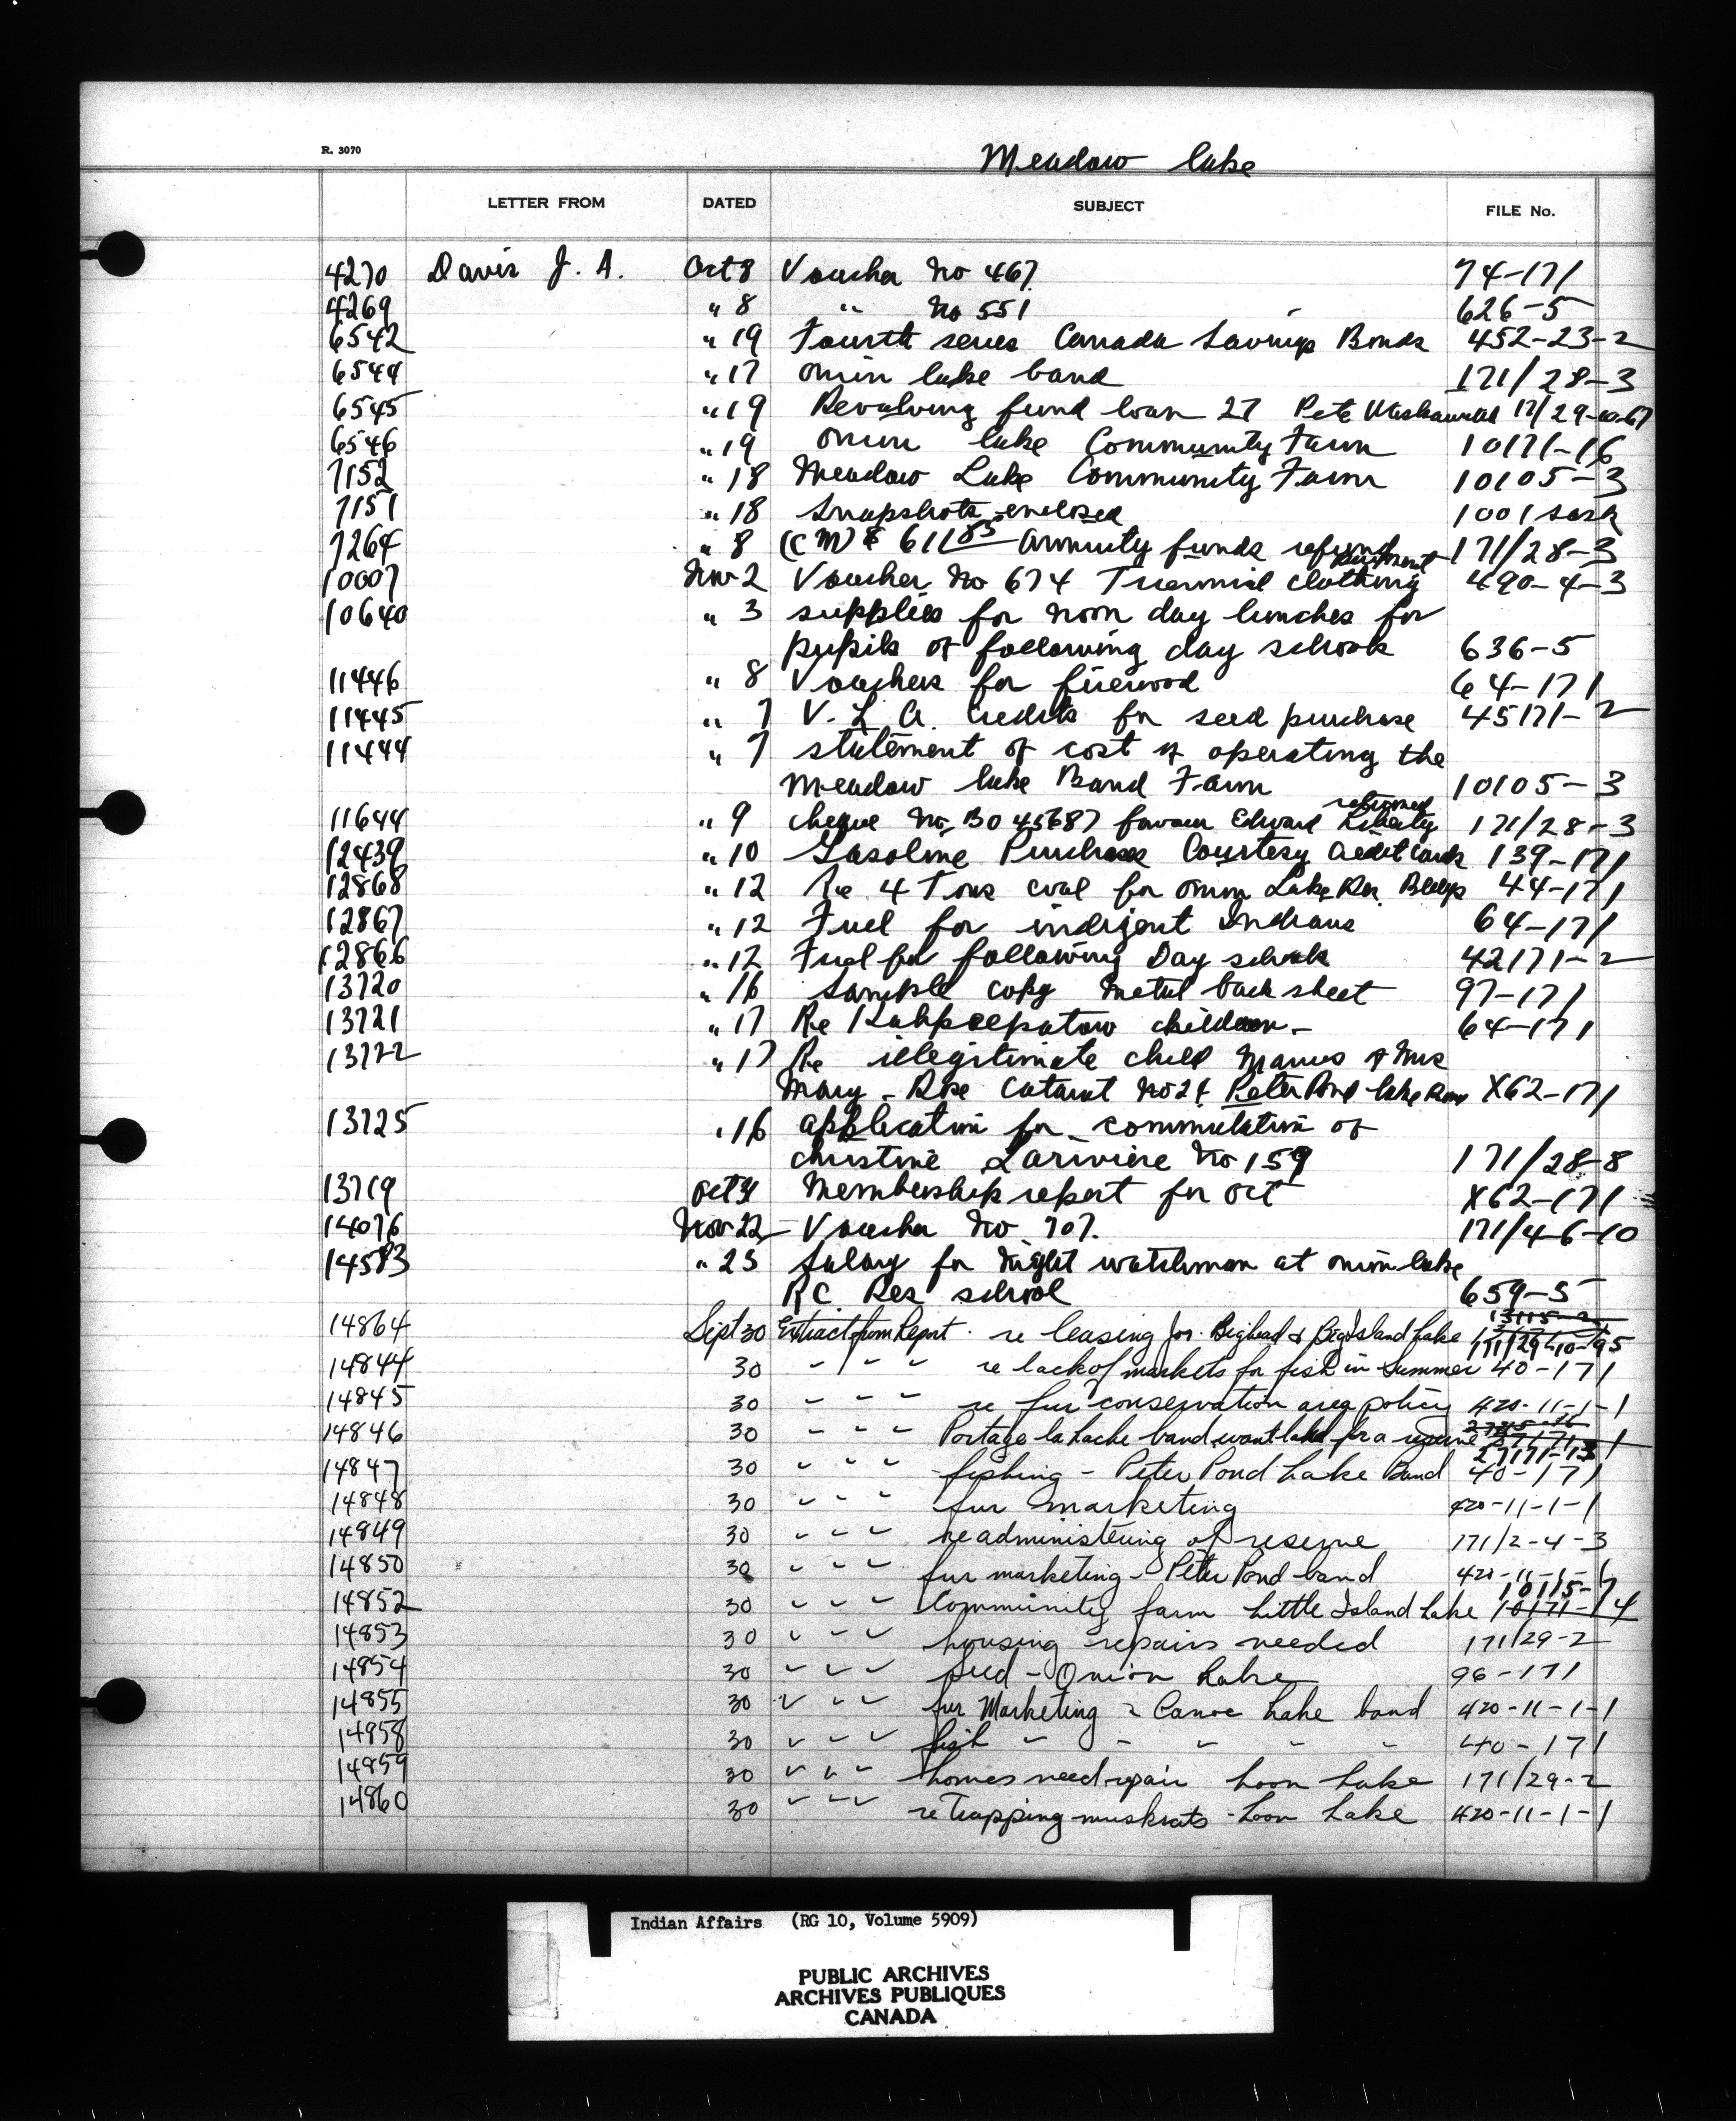 R. 3070
Meadow Lake
LETTER FROM DATED SUBJECT FILE No.
4270 Davis J. A. Oct 8 Voucher No 467. 74-171
4269 " 8 " No 551 626-5
6542 " 19 Fourth series Canada Savings Bonds 452-23-2
6544 " 17 Onion lake band 171/28-3
6545 " 19 Revolving fund loan 27 Pete 17/29-10-67
6546 " 19 Onion lake Community Farm 10171-16
7152 " 18 Meadow Lake Community Farm 10105-3
7151 " 18 Snapshots enclosed 1001 Sask
7264 " 8 (CM) $ 611 85 Annuity funds refund 171/28-3
10007 Nov 2 Voucher No 674 Triennial clothing 490-4-3
10640 " 3 supplies for noon day lunches for
pupils of following day schools 636-5
11446 " 8 Vouchers for firewood 64-171
11445 " 7 V. L. A. Credits for seed purchase 45171-2
11444 " 7 statement of cost of operating the
Meadow lake Band Farm 10105-3
returned
11644 " 9 cheque No, BO 45687 favour Edward 171/28-3
12439 " 10 Gasoline Purchases Courtesy Credit Cards 139-171
12868 " 12 Re 4 Tons coal for Onion Lake Res. Bldgs 44-171
12867 " 12 Fuel for indigent Indians 64-171
12866 " 12 Fuel for following Day schools 42171-2
13720 " 16 Sample copy metal back sheet 97-171
13721 " 17 Re children - 64-171
13722 " 17 Re illegitimate child &
Mary - Rose Catarat No 24 Peter Pond lake Band X62-171
13725 " 16 application for commutation of
Christine Lariviere No 159 171/28-8
13719 Oct 31 Membership report for Oct X62-171
14076 Nov 22 - Voucher No 707. 171/4-6-10
14583 " 23 Salary for Night watchman at Onion lake
RC Res school 659-5
13115-2
14864 Sept 30 Extract from Report. re leasing for Bighead & Big Island Lake 171/29-10-95
14844 30 " " " re lack of markets for fish in Summer 40-171
14845 30 " " " re fur conservation area policy 420-11-1-1
14846 30 " " " Portage la Loche band want land for a reserve
27171-13
14847 30 " " " fishing - Peter Pond Lake Band 40-171
14848 30 " " " fur marketing 420-11-1-1
14849 30 " " " re administering of reserve 171/2-4-3
14850 30 " " " fur marketing - Peter Pond band 420-11-1-1
10115-7
14852 30 " " " Community farm Little Island Lake 10171-14
14853 30 " " " housing repairs needed 171/29-2
14854 30 " " " seed - Onion Lake 96-171
14855 30 " " " fur Marketing - Canoe Lake band 420-11-1-1
14858 30 " " " fish " " " " " 40-171
14859 30 " " " homes need repair Loon Lake 171/29-2
14860 30 " " " re Trapping muskrats - Loon Lake 420-11-1-1
Indian Affairs (RG 10, Volume 5909)
PUBLIC ARCHIVES
ARCHIVES PUBLIQUES
CANADA